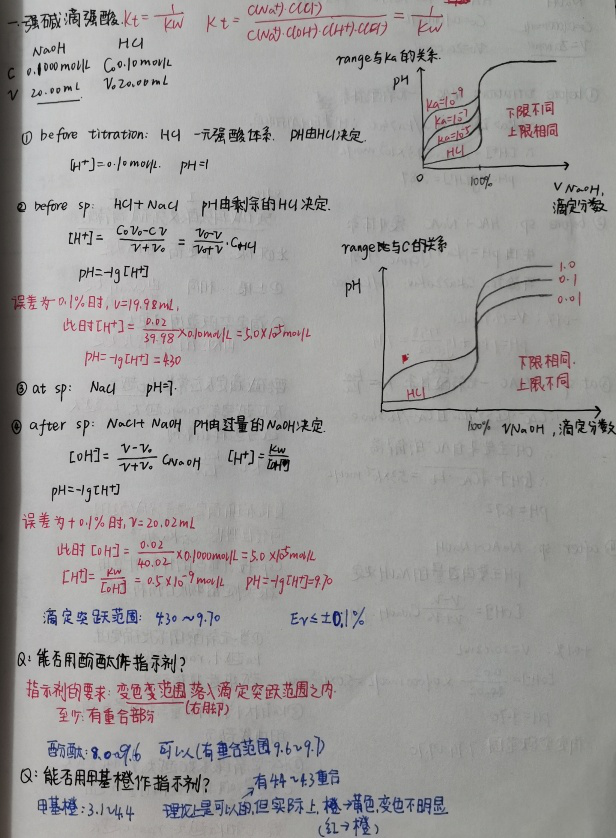 一. 强碱滴强酸. Kt = 1/Kw   Kt = c(Na⁺)·c(Cl⁻)/c(Na⁺)·c(OH⁻)·c(H⁺)·c(Cl⁻) = 1/Kw
NaOH   HCl
C 0.1000mol/L   C₀ 0.10mol/L
V 20.00mL   V₀ 20.00mL
① before titration: HCl 一元强酸体系. pH由HCl决定.
[H⁺]=0.10mol/L   pH=1
② before sp: HCl+NaCl   pH由剩余的HCl决定.
[H⁺]= C₀V₀-CV/V+V₀ = V₀-V/V₀+V · CHCl
pH=-lg[H⁺]
误差为-0.1%时, V=19.98mL,
此时[H⁺]= 0.02/39.98 ×0.10mol/L=5.0×10⁻⁵mol/L
pH=-lg[H⁺]=4.30
③ at sp: NaCl   pH=7.
④ after sp: NaCl+NaOH pH由过量的NaOH决定.
[OH⁻]= V-V₀/V+V₀ CNaOH   [H⁺]= Kw/[OH⁻]
pH=-lg[H⁺]
误差为+0.1%时, V=20.02mL
此时[OH⁻]= 0.02/40.02 ×0.1000mol/L=5.0×10⁻⁵mol/L
[H⁺]= Kw/[OH⁻] = 0.5×10⁻⁹mol/L   pH=-lg[H⁺]=9.70
滴定突跃范围: 4.30~9.70   Er≤±0.1%
Q: 能否用酚酞作指示剂?
指示剂的要求: 变色范围落入滴定突跃范围之内.
至少: 有重合部分
酚酞: 8.0~9.6   可以(有重合范围9.6~9.7)
Q: 能否用甲基橙作指示剂?   有4.4~4.3重合
甲基橙: 3.1~4.4   理论上是可以的, 但实际上, 橙→黄色, 变色不明显
(红→橙)
range与Ka的关系.
pH
Ka=10⁻⁹
Ka=10⁻⁷
Ka=10⁻⁵
HCl
下限不同
上限相同
0   100%   V NaOH,
滴定分数
range与C的关系
pH
1.0
0.1
0.01
HCl
下限相同.
上限不同
100%   VNaOH, 滴定分数